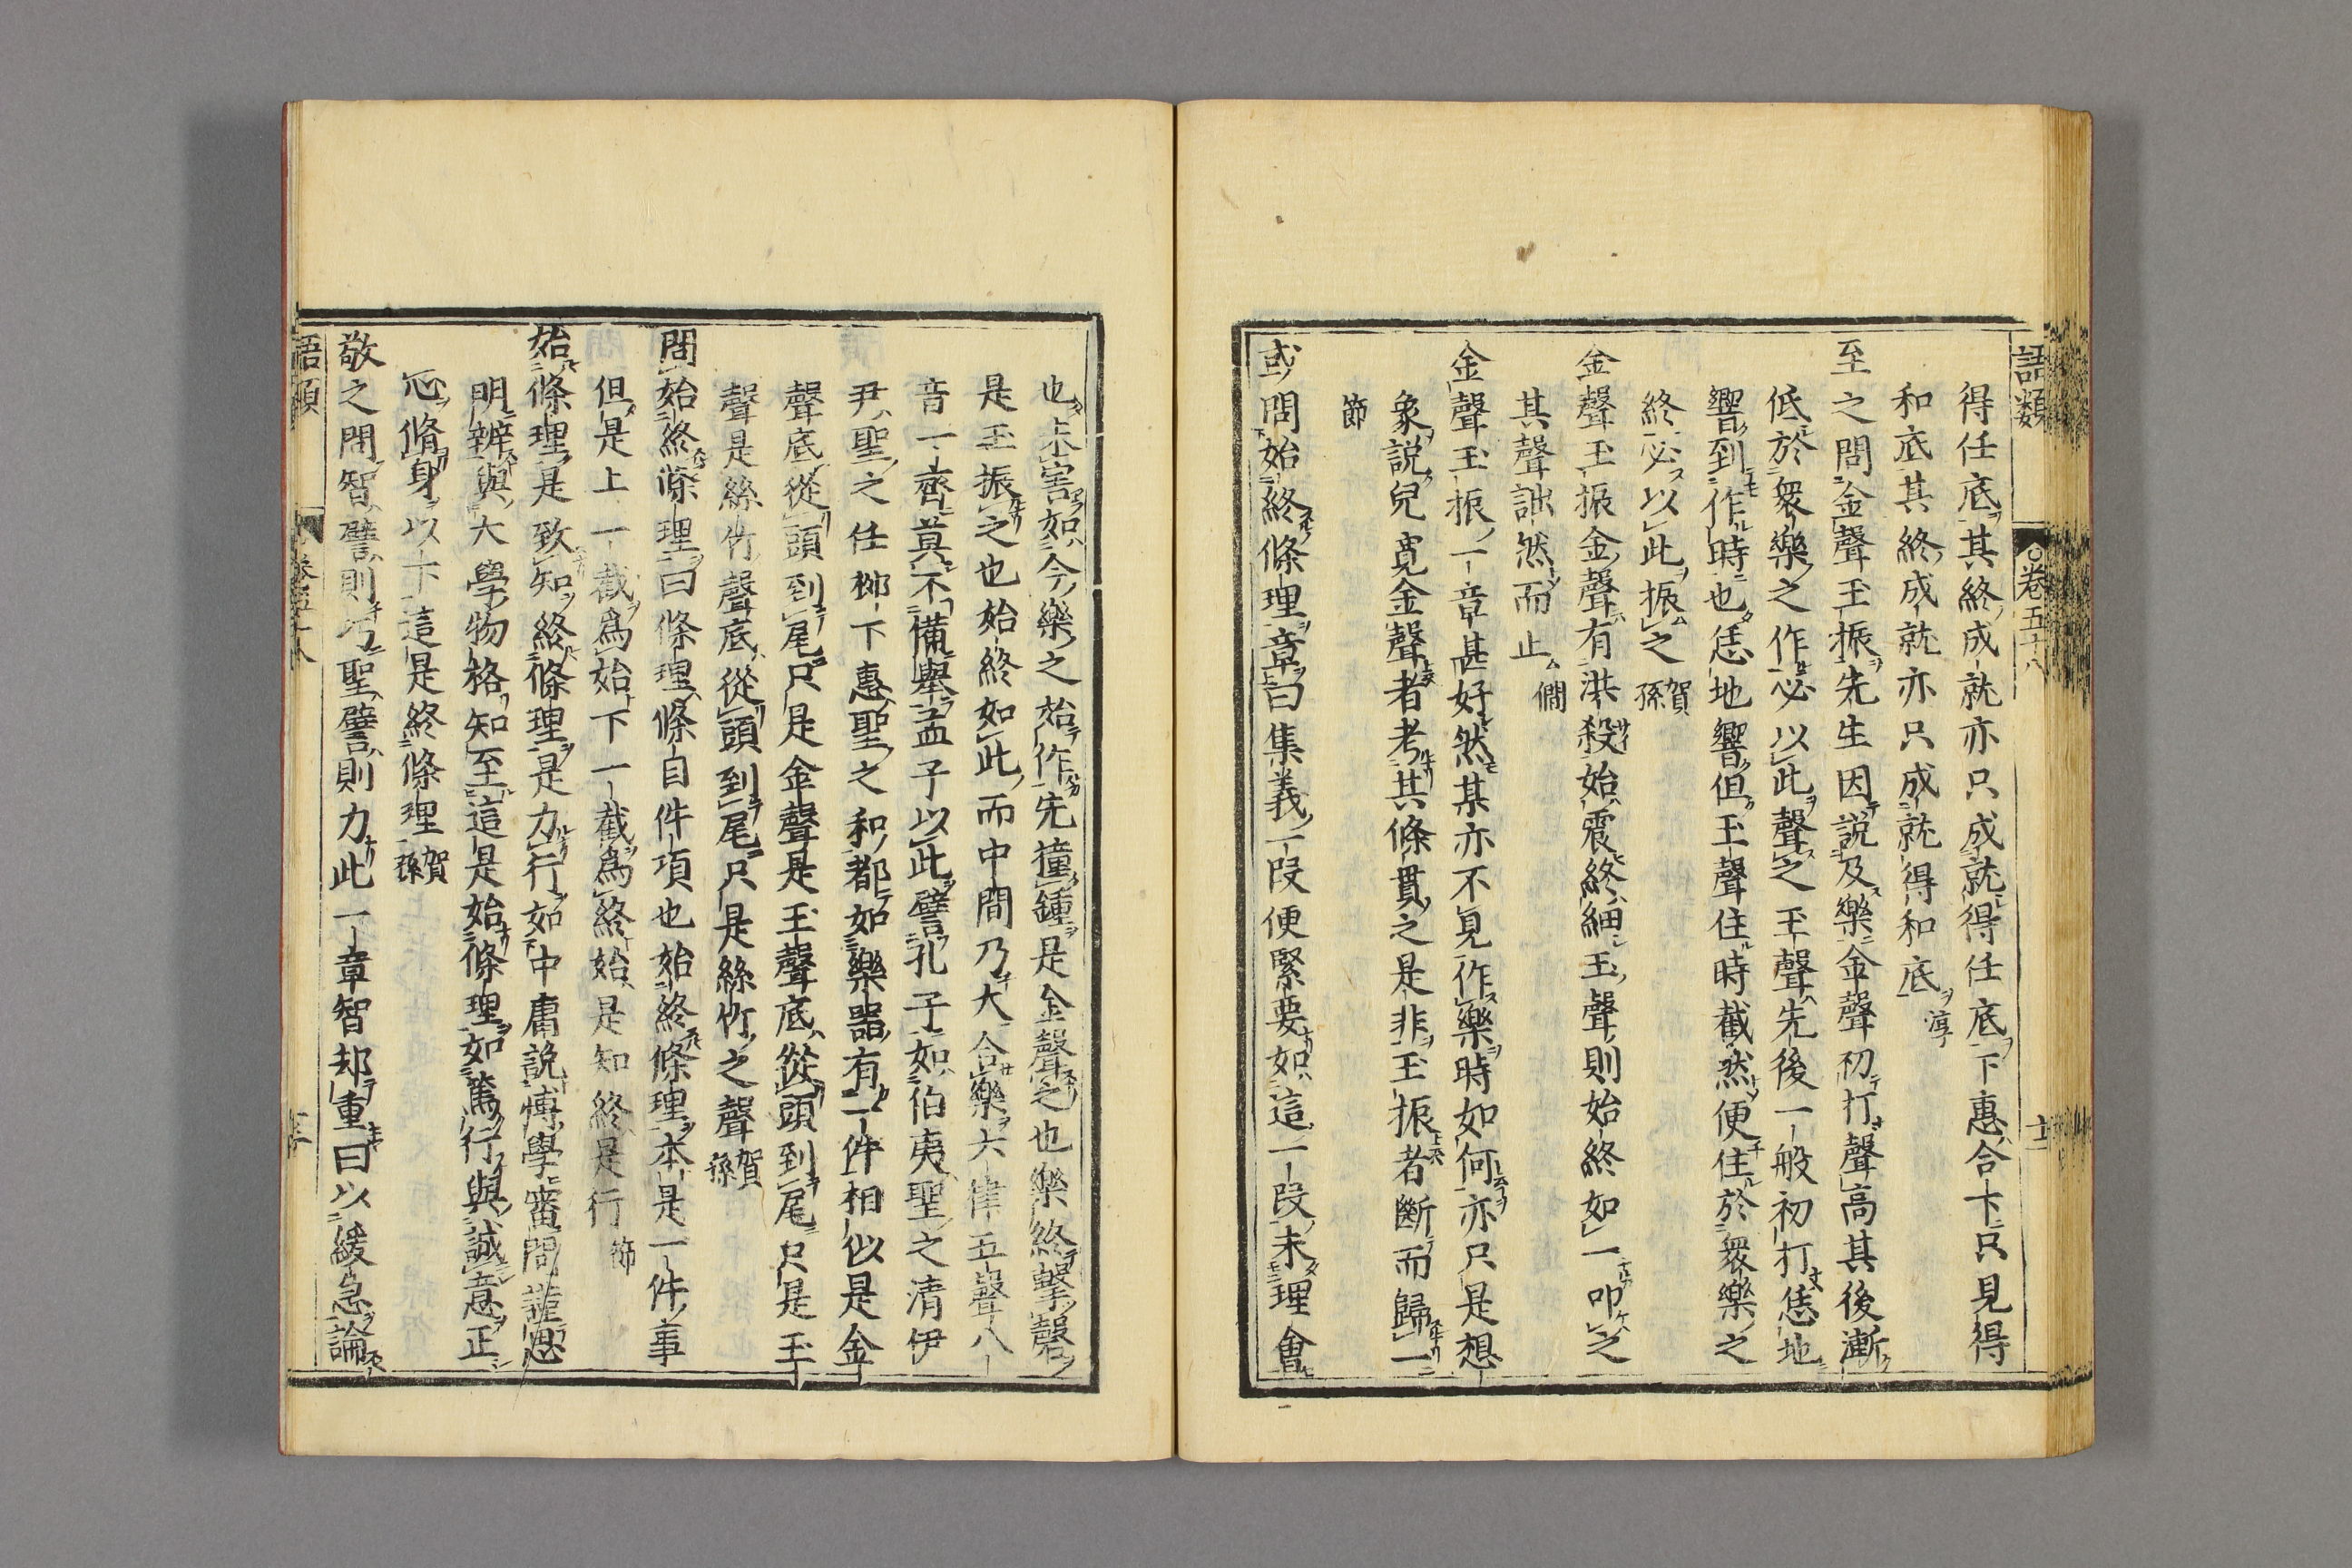 語類
卷五十八
得任底其終成就亦只成就得任底下惠合下只見得
和底其終成就亦只成就得和底淳
至之問金聲玉振先生因說及樂金聲初打聲高其後漸
低於衆樂之作必以此聲之玉聲先後一般初打恁地
響到作時也恁地響但玉聲住時截然便住於衆樂之
終必以此振之賀孫
金聲玉振金聲有洪殺始震終細玉聲則始終如一叩之
其聲詘然而止僩
金聲玉振一章甚好然某亦不見作樂時如何亦只是想
象說兒寬金聲者考其條貫之是非玉振者斷而歸一
節
或問始終條理章曰集義一段便緊要如這一段未理會
也未害如今樂之始作先撞鍾是金聲之也樂終擊磬
是玉振之也始終如此而中間乃大合樂六律五聲八
音一齊莫不備舉孟子以此譬孔子如伯夷聖之清伊
尹聖之任柳下惠聖之和都如樂器有一件相似是金
聲底從頭到尾只是金聲是玉聲底從頭到尾只是玉
聲是絲竹聲底從頭到尾只是絲竹之聲賀孫
問始終條理曰條理條目件項也始終條理本是一件事
但是上一截爲始下一截爲終始是知終是行節
始條理是致知終條理是力行如中庸說博學審問謹思
明辨與大學物格知至這是始條理如篤行與誠意正
心脩身以下這是終條理賀孫
敬之問智譬則巧聖譬則力此一章智却重曰以緩急論
語類
卷五十八